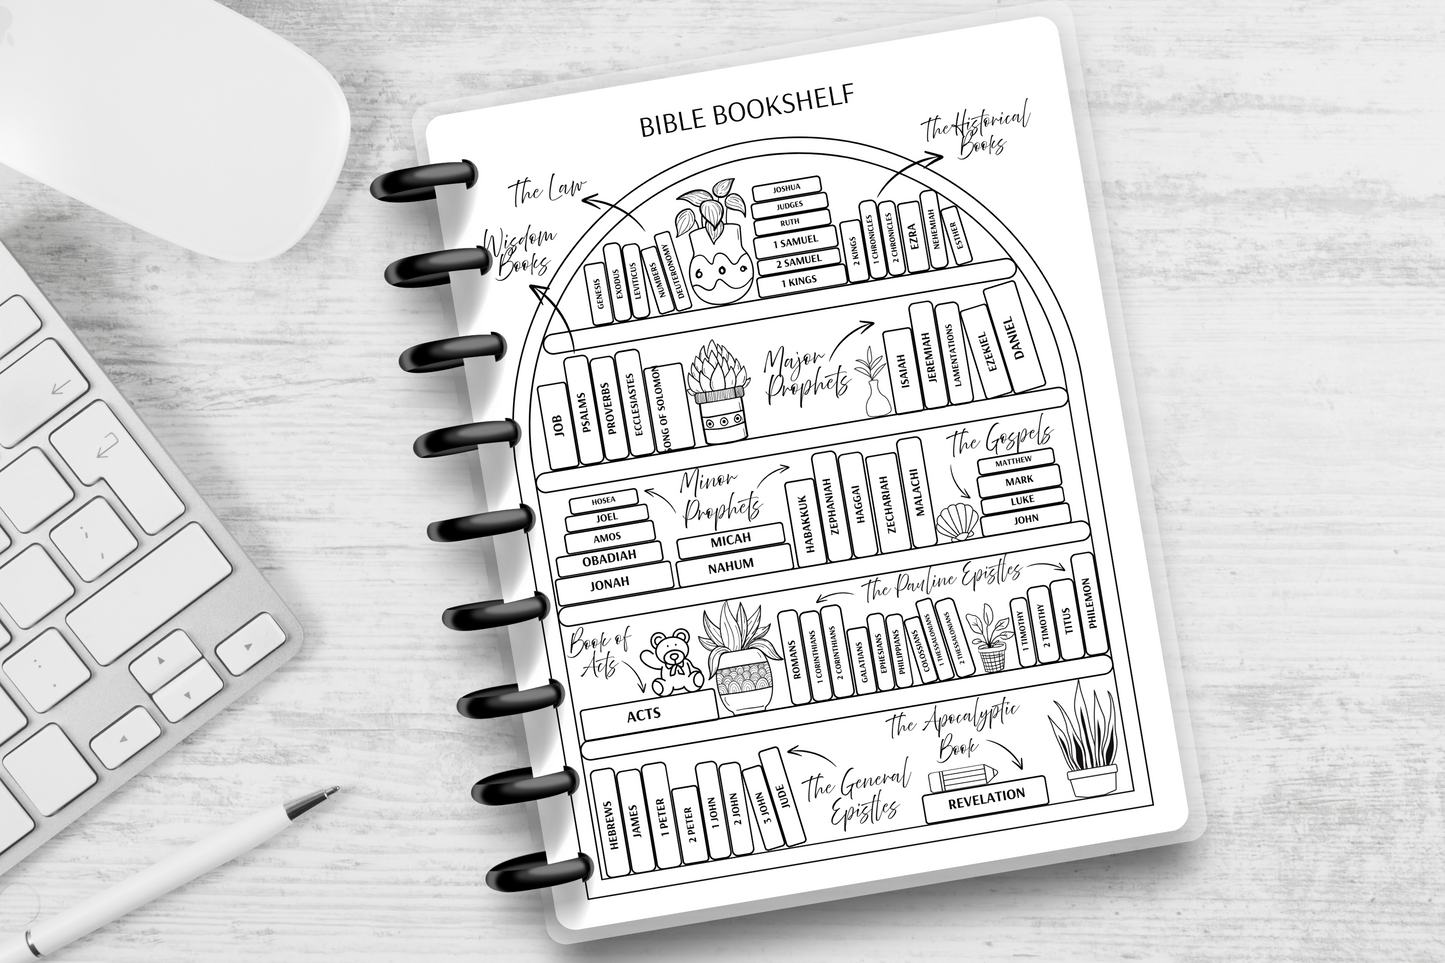 BIBLE BOOKSHELF
The Law
The Historical
Books
Wisdom
Books
GENESIS
EXODUS
LEVITICUS
NUMBERS
DEUTERONOMY
JOSHUA
JUDGES
RUTH
1 SAMUEL
2 SAMUEL
1 KINGS
2 KINGS
1 CHRONICLES
2 CHRONICLES
EZRA
NEHEMIAH
ESTHER
JOB
PSALMS
PROVERBS
ECCLESIASTES
SONG OF SOLOMON
Major
Prophets
ISAIAH
JEREMIAH
LAMENTATIONS
EZEKIEL
DANIEL
HOSEA
JOEL
AMOS
OBADIAH
JONAH
Minor
Prophets
MICAH
NAHUM
HABAKKUK
ZEPHANIAH
HAGGAI
ZECHARIAH
MALACHI
The Gospels
MATTHEW
MARK
LUKE
JOHN
Book of
Acts
ACTS
The Pauline Epistles
ROMANS
1 CORINTHIANS
2 CORINTHIANS
GALATIANS
EPHESIANS
PHILIPPIANS
COLOSSIANS
1 THESSALONIANS
2 THESSALONIANS
1 TIMOTHY
2 TIMOTHY
TITUS
PHILEMON
HEBREWS
JAMES
1 PETER
2 PETER
1 JOHN
2 JOHN
3 JOHN
JUDE
The General
Epistles
The Apocalyptic
Book
REVELATION